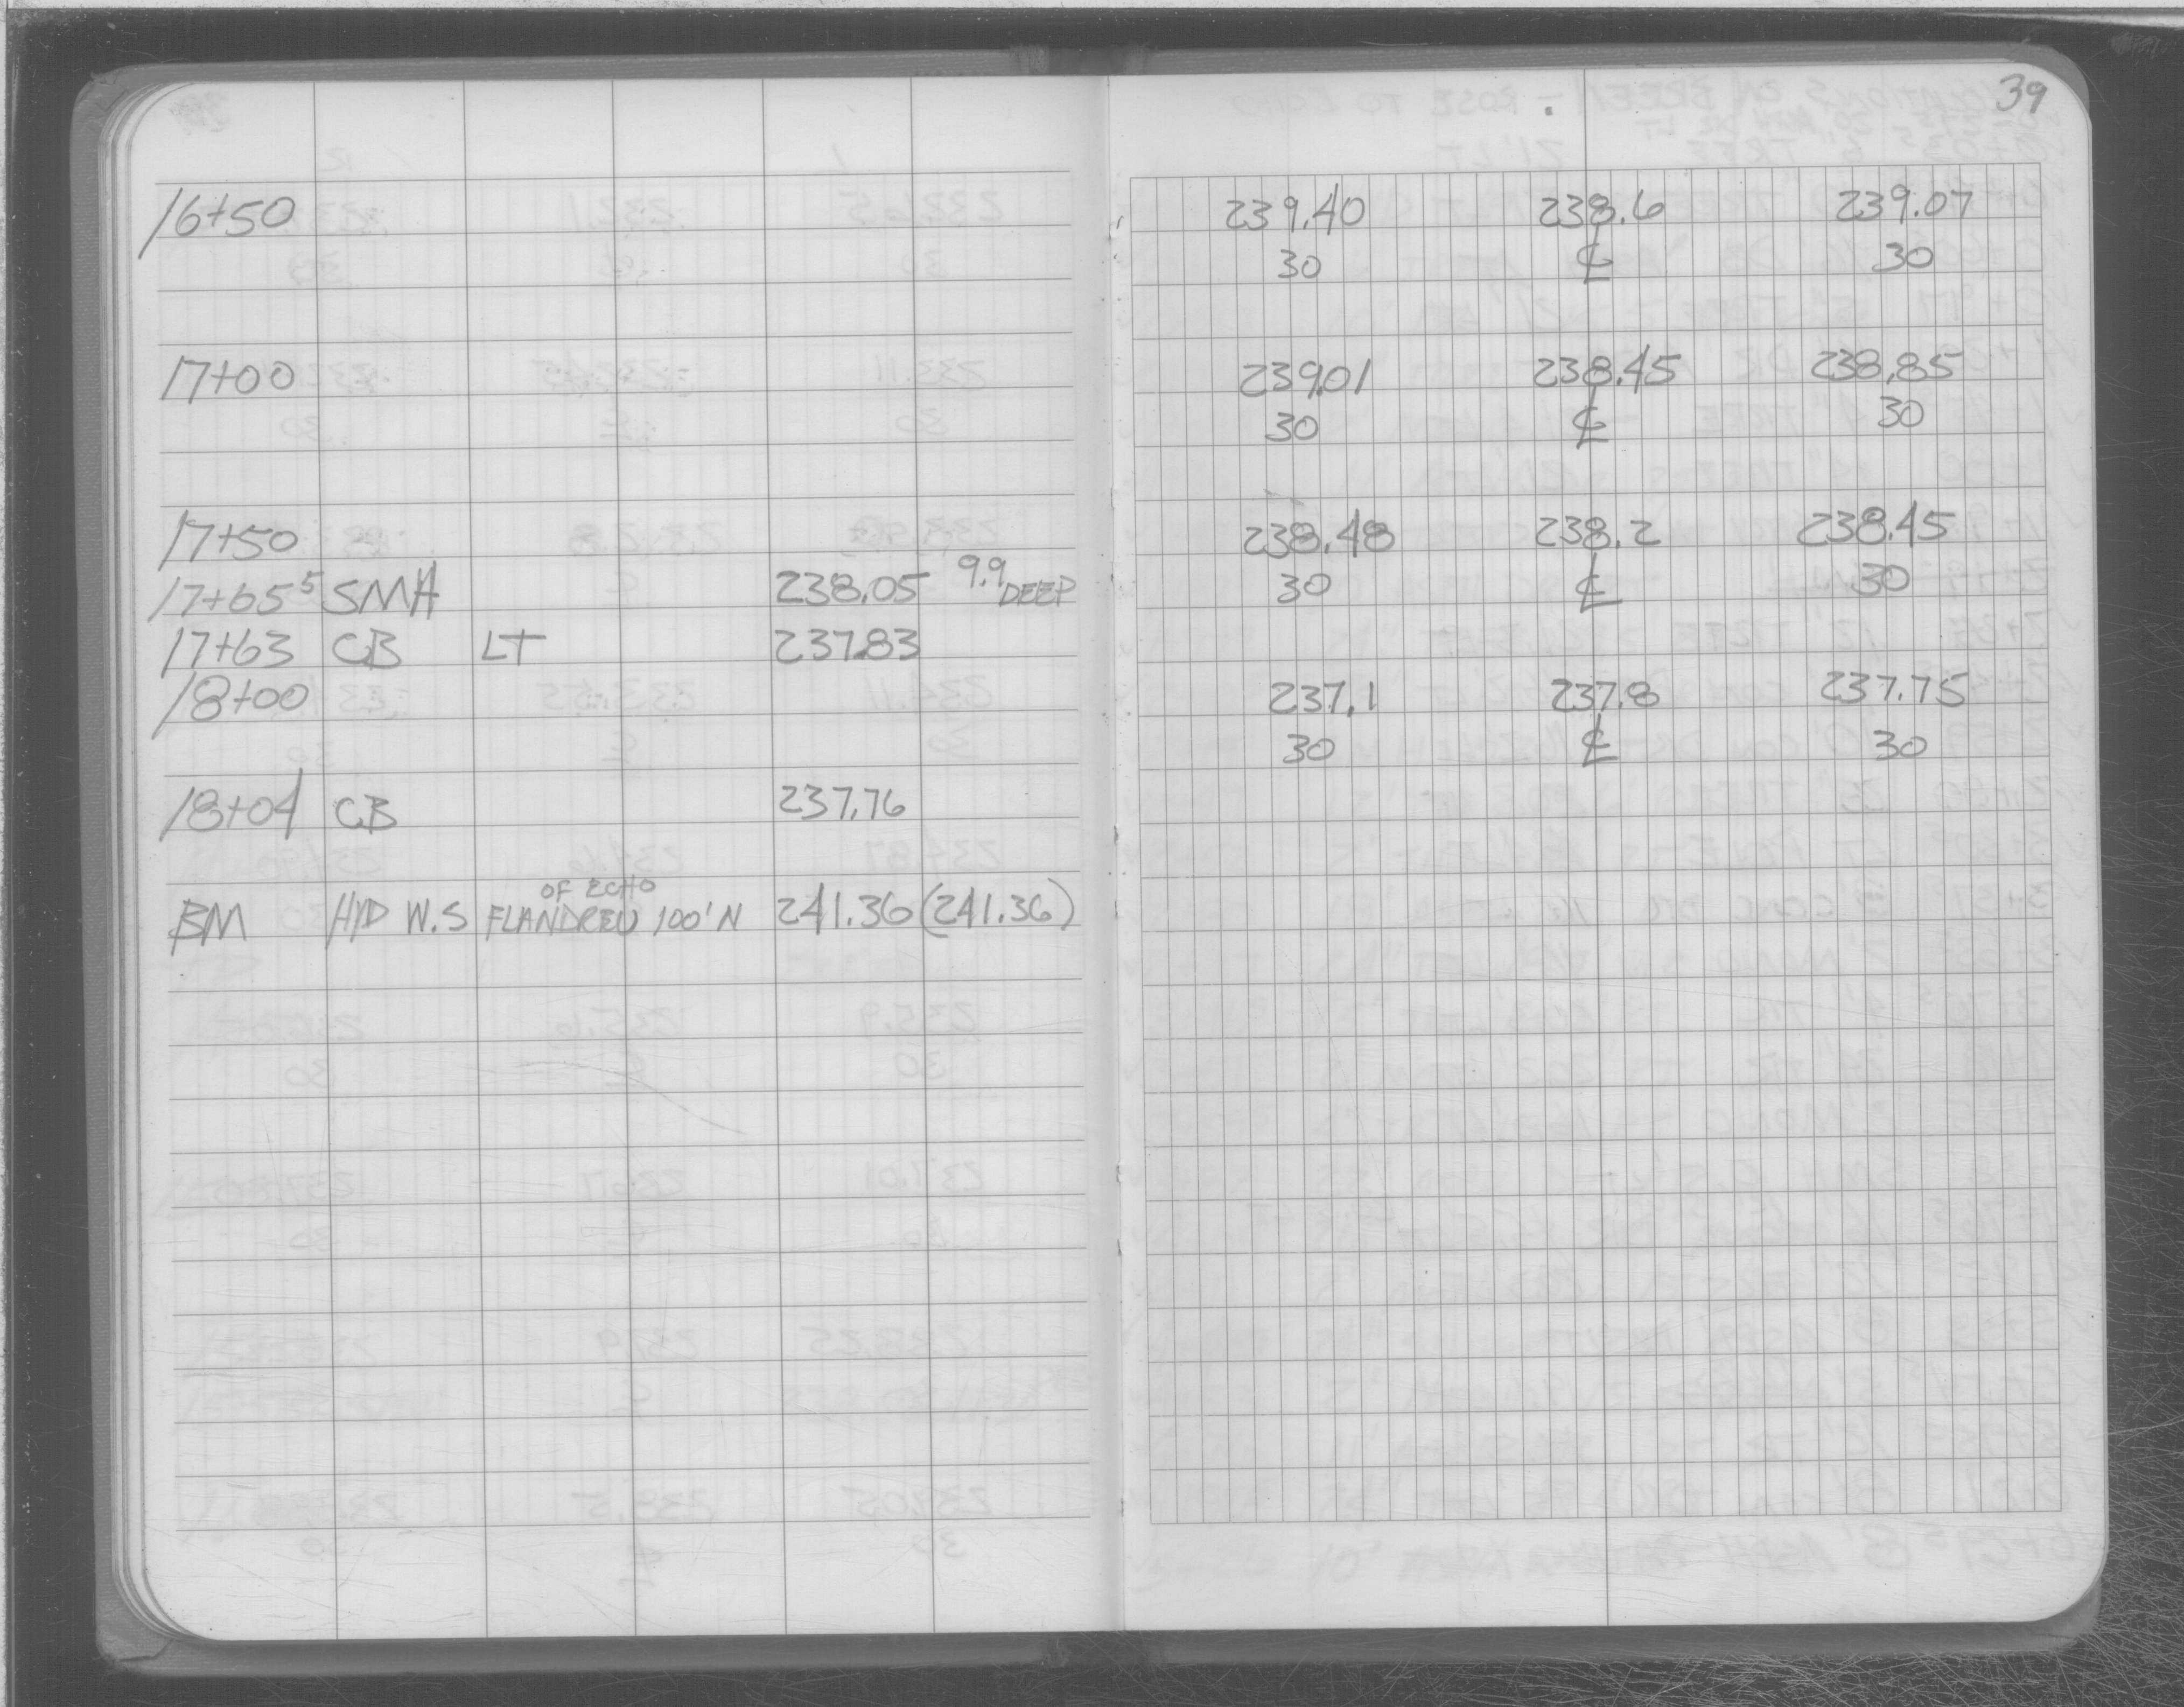 39
16+50 239.40 238.6 239.07
30 ℄ 30
17+00 239.01 238.45 238.85
30 ℄ 30
17+50 238.48 238.2 238.45
17+65⁵ SMH 238.05 9.9 DEEP 30 ℄ 30
17+63 CB LT 237.83
18+00 237.1 237.8 237.75
30 ℄ 30
18+04 CB 237.76
OF ECHO
BM HYD W.S FLANDREU 100'N 241.36 (241.36)